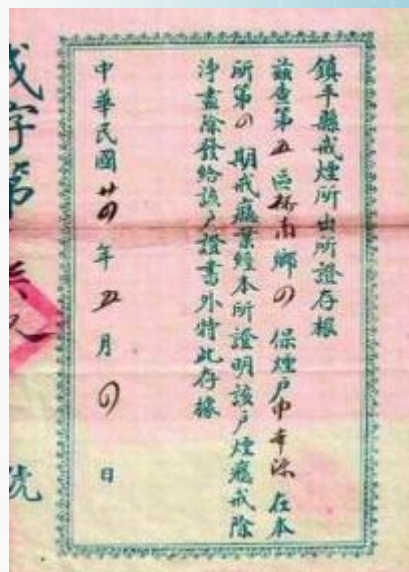 鎮平縣戒煙所出所證存根
茲查第五區楊南鄉の保煙戶巾本深在本
所第の期戒癮業經本所證明該戶煙癮戒除
淨盡除發給該戶證書外特此存據
中華民國廿の年五月の日
戒字第 號